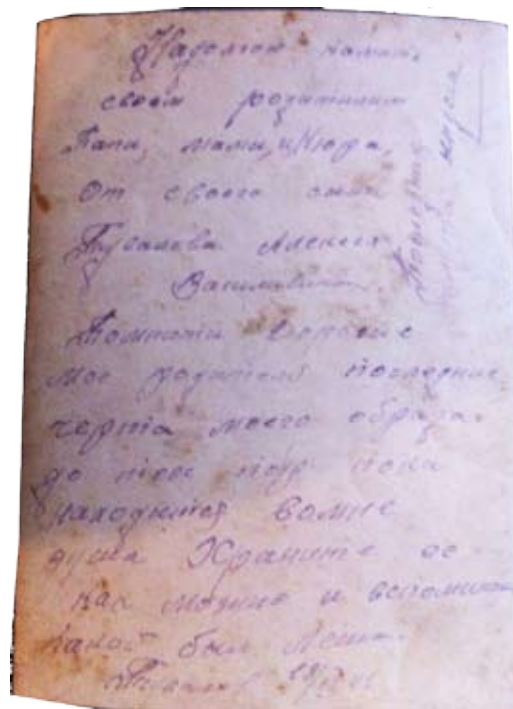 На долгою память
своим родителям
Папи, мами, и Нюра,
От своего сына
Алексея
Васильевича
Помнити дорогие
мое родители последние
черта моего образа
до тех пор пока
находится вомне
душа Храните ее
как можно и вспоминай
какой был Леша.